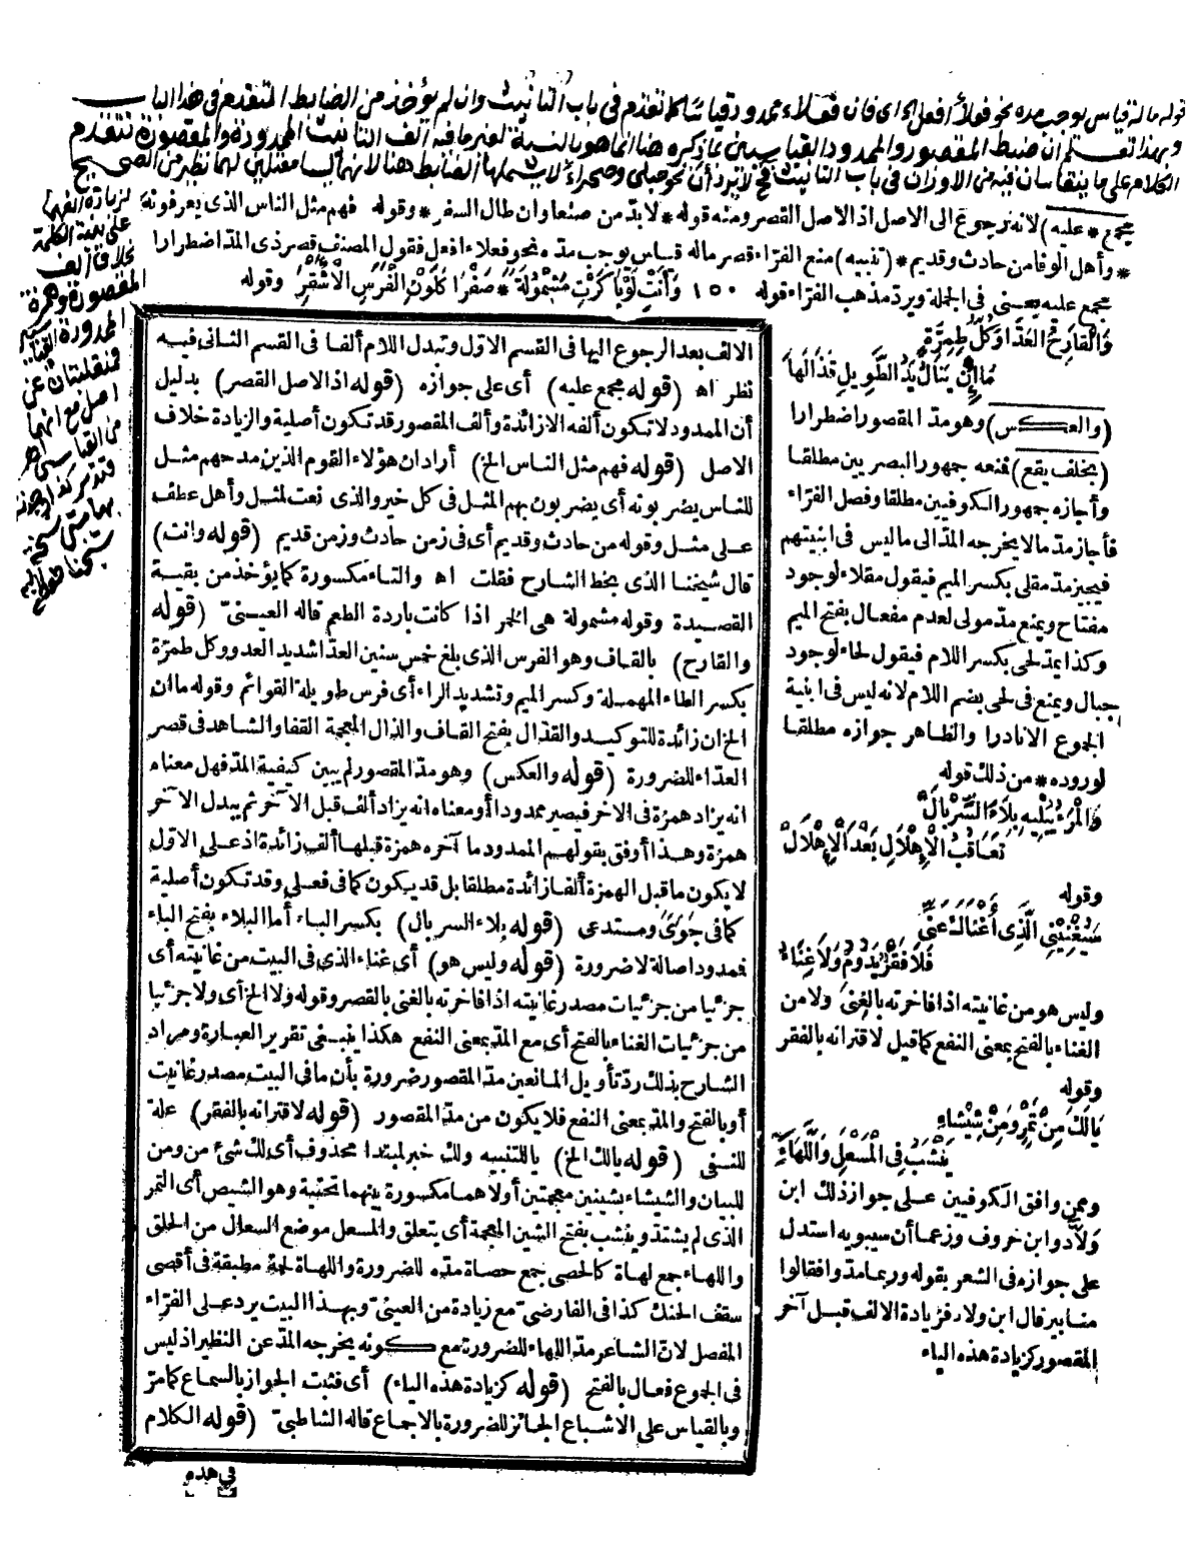 قوله ماله قياس يوجب مده نحو فعلاء افعل الخ اى فان فعلاء ممدود قياسا كما تقدم فى باب التانيث وان لم يؤخذ من الضابط المتقدم فى هذا الباب
وبهذا تعلم ان ضبط المقصور والممدود القياسيين بما ذكره هنا انما هو بالنسبة لغير ما فيه الف التانيث الممدودة والمقصورة لتقدم
الكلام على ما ينقاسان فيه من الاوزان فى باب التانيث فلا يرد أن نحو حبلى وصحراء لا يشملها الضابط هنا لانهما ليسا معتلين لهما نظير من الصحيح
لزيادة الفهما
على بنية الكلمة
بخلاف الف
المقصورة وهمزة
الممدودة
فمنقلبتان عن
اصل مع انهما
من القياسى اهـ
مجمع * عليه) لانه رجوع الى الاصل اذ الاصل القصر ومنه قوله * لابد من صنعا وان طال السفر * وقوله فهم مثل الناس الذى يعرفونه
* وأهل الوفا من حادث وقديم * (تنبيه) منع الفراء قصر ماله قياس يوجب مده نحو فعلاء افعل فقول المصنف قصر ذى المد اضطرارا
مجمع عليه يعنى فى الجملة ويرد مذهب الفراء قوله ١٥٠ وَأَنْتِ لَوْ بَاكَرْتِ مَشْمُولَةً * صَفْرَا كَلَوْنِ الْفَرَسِ الْأَشْقَرِ وقوله
وَالْقَارِحَ الْعَدَّا وَكُلَّ طِمِرَّةٍ
مَا إِنْ يَنَالُ يَدُ الطَّوِيلِ قَذَالَهَا
(والعكس) وهو مد المقصور اضطرارا
(بخلف يقع) فمنعه جمهور البصريين مطلقا
وأجازه جمهور الكوفيين مطلقا وفصل الفراء
فأجاز مد ما لا يخرجه المد الى ما ليس فى ابنيتهم
فيجيز مد مقلى بكسر الميم فيقول مقلاء لوجود
مفتاح ويمنع مد مولى لعدم مفعال بفتح الميم
وكذا يمد لحى بكسر اللام فيقول لحاء لوجود
جبال ويمنع فى لحى بضم اللام لانه ليس فى ابنية
الجموع الا نادرا والظاهر جوازه مطلقا
لوروده * من ذلك قوله
وَالْمَرْءُ يُبْلِيهِ بِلَاءَ السِّرْبَالْ
تَعَاقُبُ الْإِهْلَالِ بَعْدَ الْإِهْلَالْ
وقوله
سَيُغْنِينِي الَّذِى أَغْنَاكَ عَنِّى
فَلَا فَقْرٌ يَدُومُ وَلَا غِنَاءُ
وليس هو من غانيته اذا فاخرته بالغنى ولا من
الغناء بالفتح بمعنى النفع كما قيل لاقترانه بالفقر
وقوله
يَالَكَ مِنْ تَمْرٍ وَمِنْ شِيشَاءِ
يَنْشَبُ فِى الْمَسْعَلِ وَاللَّهَاءِ
وممن وافق الكوفيين على جواز ذلك ابن
ولاد وابن خروف وزعما أن سيبويه استدل
على جوازه فى الشعر بقوله وربما مدوا فقالوا
منابير قال ابن ولاد فزيادة الالف قبل آخر
المقصور كزيادة هذه الياء
الالف بعد الرجوع اليها فى القسم الاول وتبدل اللام ألفا فى القسم الثانى فيه
نظر اه (قوله مجمع عليه) أى على جوازه (قوله اذ الاصل القصر) بدليل
أن الممدود لا تكون ألفه الا زائدة وألف المقصور قد تكون أصلية والزيادة خلاف
الاصل (قوله فهم مثل الناس الخ) أراد ان هؤلاء القوم الذين مدحهم مثل
للناس يضربونه أى يضربون بهم المثل فى كل خير والذى نعت لمثل وأهل عطف
على مثل وقوله من حادث وقديم أى فى زمن حادث وزمن قديم (قوله وانت)
قال شيخنا الذى بخط الشارح فقلت اه والتاء مكسورة كما يؤخذ من بقية
القصيدة وقوله مشمولة هى الخمر اذا كانت باردة الطعم قاله العينى (قوله
والقارح) بالقاف وهو الفرس الذى بلغ خمس سنين العدّا شديد العدو وكل طمرّة
بكسر الطاء المهملة وكسر الميم وتشديد الراء أى فرس طويلة القوائم وقوله ما ان
الخ ان زائدة للتوكيد والقذال بفتح القاف والذال المعجمة القفا والشاهد فى قصر
العدّاء للضرورة (قوله والعكس) وهو مد المقصور لم يبين كيفية المد فهل معناه
انه يزاد همزة فى الاخر فيصير ممدودا أو معناه انه يزاد ألف قبل الآخر ثم يبدل الآخر
همزة وهذا أوفق بقولهم الممدود ما آخره همزة قبلها ألف زائدة اذ على الاول
لا يكون ما قبل الهمزة ألفا زائدة مطلقا بل قد يكون كما فى فعلى وقد تكون أصلية
كما فى جَوَى ومستدعى (قوله بلاء السربال) بكسر الباء أما البلاء بفتح الباء
فمدود اصالة لا ضرورة (قوله وليس هو) أى غناء الذى فى البيت من غانيته أى
جزئيا من جزئيات مصدر غانيته اذا فاخرته بالغنى بالقصر وقوله ولا الخ أى ولا جزئيا
من جزئيات الغناء بالفتح أى مع المد بمعنى النفع هكذا ينبغى تقرير العبارة ومراد
الشارح بذلك ردّ تأويل المانعين مد المقصور ضرورة بأن ما فى البيت مصدر غانيت
أو بالفتح والمد بمعنى النفع فلا يكون من مد المقصور (قوله لاقترانه بالفقر) علة
للنفى (قوله يالك الخ) يا للتنبيه ولك خبر لمبتدا محذوف أى لك شئ من ومن
للبيان والشيشاء بشينين معجمتين أولاهما مكسورة بينهما تحتية وهو الشيص أى التمر
الذى لم يشتد وينشب بفتح الشين المعجمة أى يتعلق والمسعل موضع السعال من الحلق
واللهاء جمع لهاة كالحصى جمع حصاة مده للضرورة واللهاة لحمة مطبقة فى أقصى
سقف الحنك كذا فى الفارضى مع زيادة من العينى وبهذا البيت يرد على الفراء
المفصل لان الشاعر مد اللهاء للضرورة مع كونه يخرجه المد عن النظير اذ ليس
فى الجموع فعال بالفتح (قوله كزيادة هذه الياء) أى فثبت الجواز بالسماع كما مرّ
وبالقياس على الاشباع الجائز للضرورة بالاجماع قاله الشاطبى (قوله الكلام
فى هذه